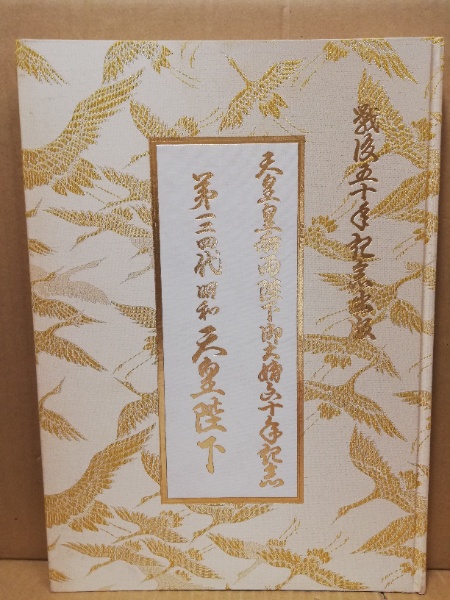 戦後五十年記念出版
天皇皇后両陛下御大婚六十年記念
第一二四代昭和天皇陛下